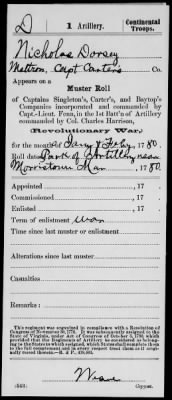 D | 1 Artillery. | Continental
Troops.
Nicholas Dorsey
Mattross, Capt Carter's Co.
Appears on a
Muster Roll
of Captains Singleton's, Carter's, and Baytop's
Companies incorporated and commanded by
Capt.-Lieut. Fenn, in the 1st Batt'n of Artillery
commanded by Col. Charles Harrison,
(Revolutionary War,)
for the months of Jany & Feby, 1780.
Roll dated Park of Artillery near
Morristown Mar , 1780.
Appointed , 17 .
Commissioned , 17 .
Enlisted , 17 .
Term of enlistment war
Time since last muster or enlistment
Alterations since last muster
Casualties
Remarks:
This regiment was organized in compliance with a Resolution of
Congress of November 26, 1776. It was subsequently assigned to the
State of Virginia, under Act of Congress of October 3, 1780, which
provided that the Regiments of Artillery be considered as belong-
ing to the States to which assigned, which States shall complete them to
the full complement and in every respect treat them as if originally
raised therein.—R. & P.,
(543) Copyist.